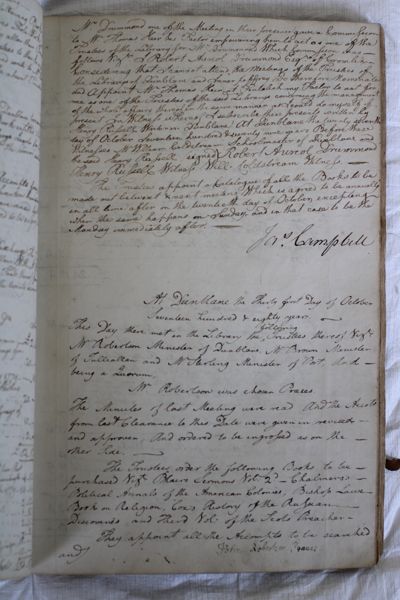 Mr Drummond one of the Meeting in their presence gave a Commission
to Mr Thomas Keir his Factor empowering him to act as one of the
Trustees of the Library for Mr Drummond Which Commission is as
follows Vizt I Robert Auriol Drummond Esqr of Cromlix
Considering that I cannot attend the Meetings of the Trustees of
the Library of Dunblane and Do therefore Nominate
and Appoint Mr Thomas Keir at my Factor to act for
me as one of the Trustees of the said Library and in the management
of the affairs thereof in the same manner as I could do myself if
present In Witness whereof I subscribe these presents written by
Henry Russell Writer in Dunblane At Dunblane the twenty
day of October Seventeen hundred & seventy nine years Before these
Witnesses Mr William Coldstream Schoolmaster of Dunblane and
the said Henry Russell signed Robert Auriol Drummond
Henry Russell Witness Will: Coldstream Witness
The Trustees appoint a Catalogue of all the Books to be
made out betwixt & next meeting Which is agreed to be annually
in all time after on the twentieth day of October excepting
when the same happens on Sunday and in that case to be the
Monday immediately after.
Jno Campbell
At Dunblane the Thirty first Day of October
Seventeen Hundred & eighty years
This Day there met in the Library the following Trustees thereof Vizt
Mr Robertson Minister of Dunblane, Mr Brown Minister
of Tulliallan and Mr Sterling Minister of Port And
being a Quorum.
Mr Robertson was chosen Preses.
The Minutes of last Meeting were read And the Accots
from last Clearance to this Date were given in revised
and approven, And ordered to be ingrossed as on the
other side.
The Trustees order the following Books to be
purchased Vizt Blairs Sermons Vol: 2d Chalmers
Political Annals of the American Colonies, Bishop Laws
Book on Religion, Coxs History of the Russian
Discoveries and Third Vol: of the Scots Preacher
They appoint all the Accompts to be searched
and
John Robertson Preses